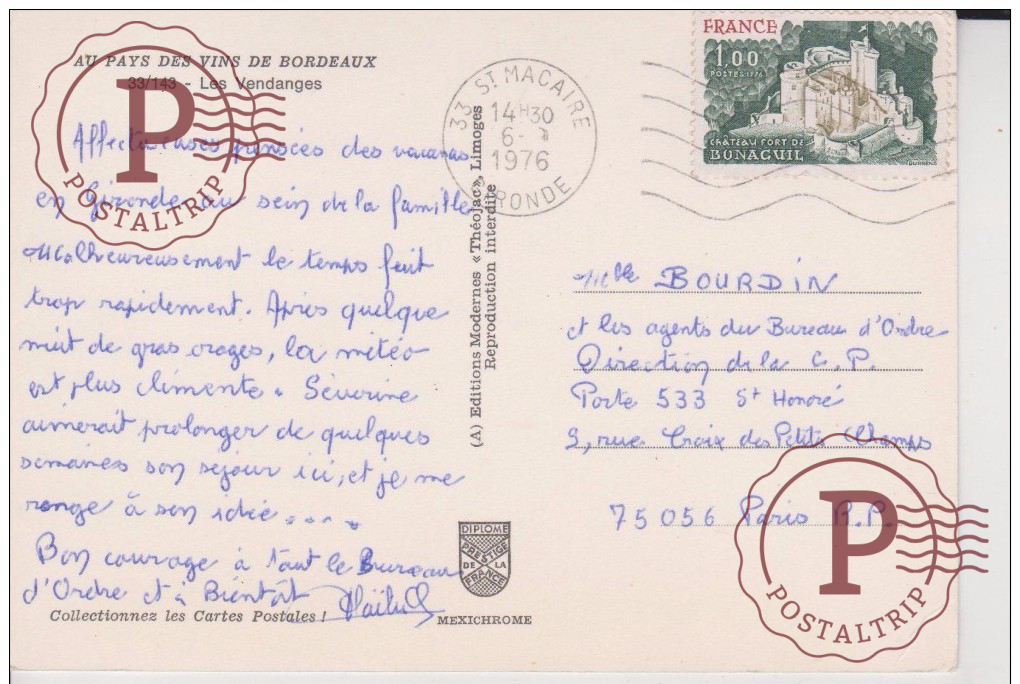 AU PAYS DES VINS DE BORDEAUX
33/143 - Les Vendanges
Affectueuses pensées des vacances
en Gironde au sein de la famille
Malheureusement le temps fuit
trop rapidement. Après quelque
nuit de gros orages, la météo
est plus clémente. Séverine
aimerait prolonger de quelques
semaines son séjour ici, et je me
range à son idée....
Bon courage à tout le Bureau
d'Ordre et à Bientôt
Collectionnez les Cartes Postales !
(A) Editions Modernes «Théojac», Limoges
Reproduction interdite
DIPLOME
PRESTIGE
DE LA
FRANCE
MEXICHROME
33 ST MACAIRE
14H30
6-
1976
GIRONDE
FRANCE
1,00
POSTES 1976
CHATEAU FORT DE
BONAGUIL
DURRENS
Mlle BOURDIN
et les agents du Bureau d'Ordre
Direction de la C.P.
Porte 533 St Honoré
9, rue Croix des Petits Champs
75056 Paris R.P.
P
POSTALTRIP
P
POSTALTRIP